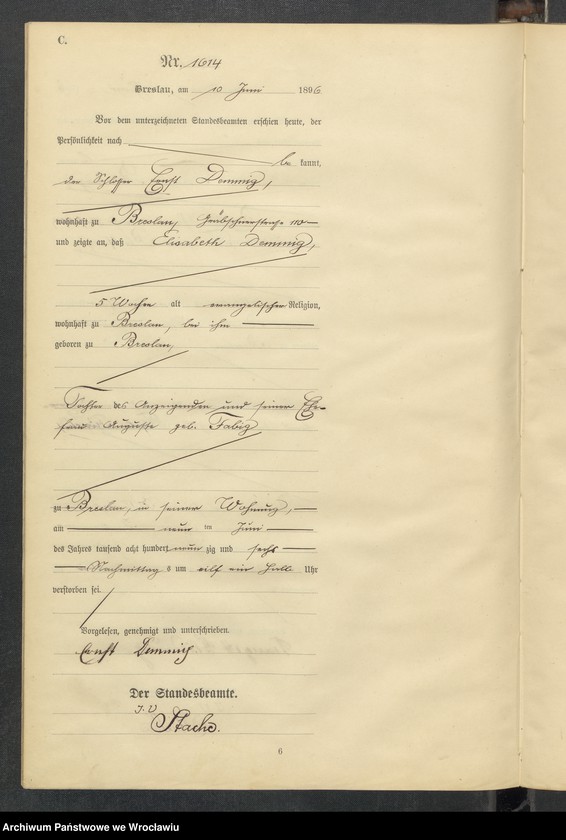 C.
Nr. 1614
Breslau, am 10 Juni 1896
Vor dem unterzeichneten Standesbeamten erschien heute, der
Persönlichkeit nach
be kannt,
der Schlosser Ernst Demmig,
wohnhaft zu Breslau, Gräbschnerstraße 110
und zeigte an, daß Elisabeth Demmig,
5 Wochen alt evangelischer Religion,
wohnhaft zu Breslau, bei ihm
geboren zu Breslau,
Tochter des Anzeigenden und seiner Ehe-
frau Auguste geb. Fabig
zu Breslau, in seiner Wohnung,
am neun ten Juni
des Jahres tausend acht hundert neun zig und sechs
Nachmittag s um elf ein halb Uhr
verstorben sei.
Vorgelesen, genehmigt und unterschrieben.
Ernst Demmig
Der Standesbeamte.
J. V
Stache.
6
Archiwum Państwowe we Wrocławiu